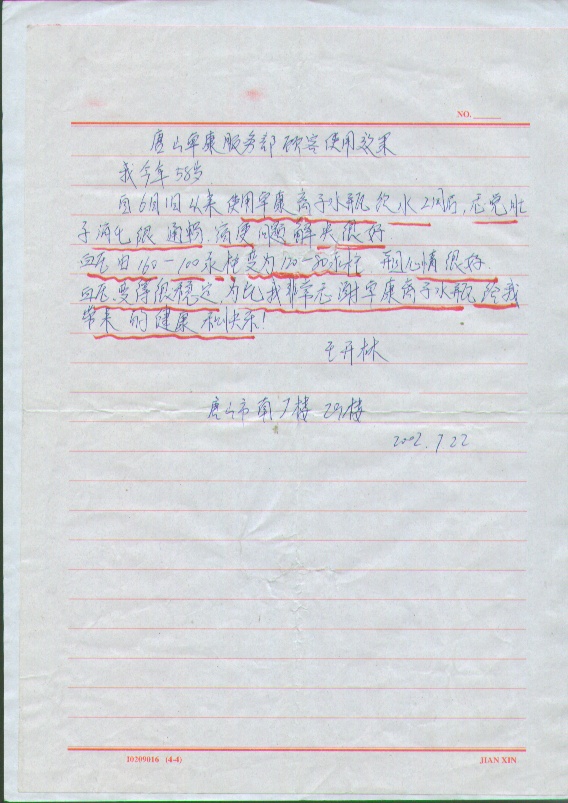 NO.
唐山军康服务部 顾客使用效果
我今年58岁
自6月1日以来使用军康离子水瓶饮水2周后,感觉肚
子消化很通畅 病变问题解决很好
血压由160-100汞柱变为120-80汞柱 心情很好
血压变得很稳定,为此我非常感谢军康离子水瓶给我
带来的健康和快乐!
王开林
唐山市南7楼 楼
2002.7.22
10209016 (4-4)
JIAN XIN